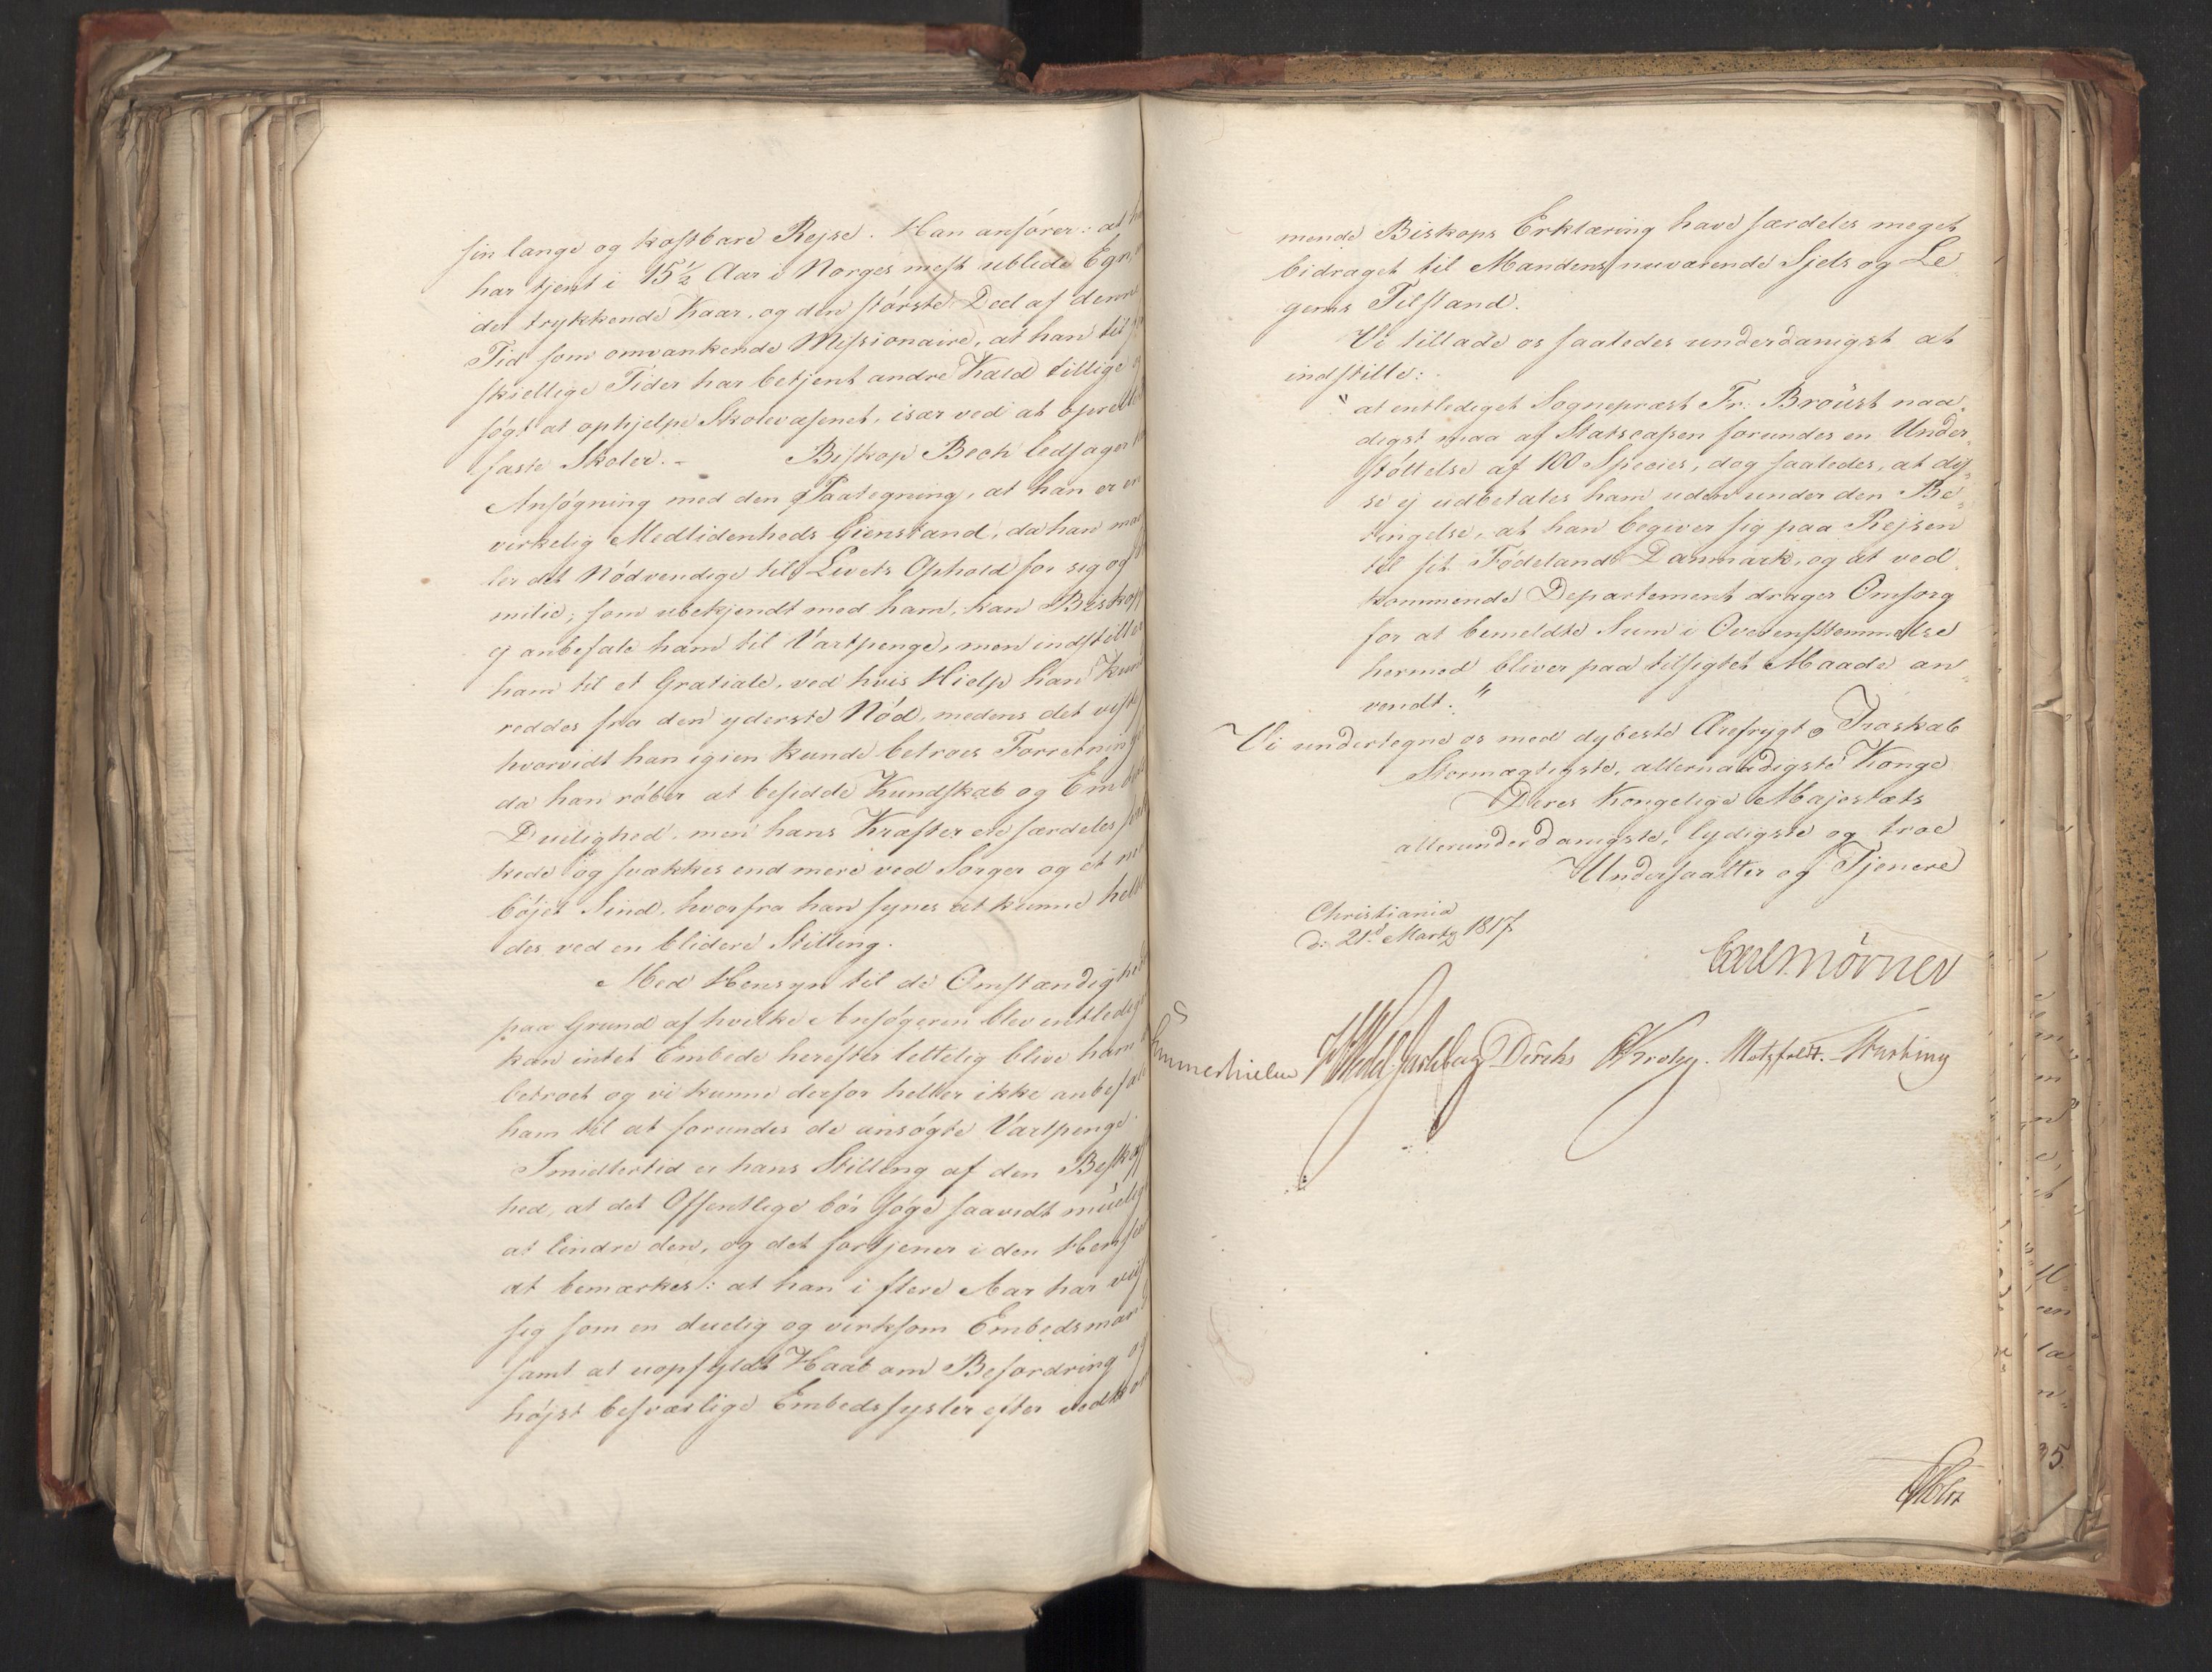 sin lange og kostbare Rejse. Han anfórer: at
har tjent i 15½ Aar i Norges mest ublide Egn,
det trykkende Kaar, og den störste Deel af denne
Tid som omvankende Missionaire, at han til
skiellige Tider har betjent andre Kald tillige
sögt at ophjelpe Skolevæsenet, især ved at oprette
faste Skoler. - Biskop Bech ledsager
Ansögning med den Paategning, at han er en
virkelig Medlidenheds Gienstand, da han man
ler det Nödvendige til Livets Ophold for sig og
milie; som ubekjendt med ham, kan Biskop
ej anbefale ham til Vartpenge, men indstiller
ham til et Gratiale, ved hvis Hielp han kun
reddes fra den yderste Nöd, medens det
hvorvidt han igien kunde betroes Forretning
da han röber at besidde Kundskab og Em
Duelighed, men hans Kræfter ere særdeles
kede og svækkes end mere ved Sorger og et
böjet Sind, hvorfra han synes at kunne hel
des ved en blidere Stilling.
Med Hensyn til de Omstændigheder
paa Grund af hvilke Ansögeren blev entlediget
kan intet Embede herefter lettelig blive ham
betroet og vi kunne derfor heller ikke anbefale
ham til at forundes de ansögte Vartpenge.
Imidlertid er hans Stilling af den Beskaf
hed, at det Offentlige bör söge saavidt muelig
at lindre den, og det fortjener i den Hensi
at bemærkes: at han i flere Aar har
sig som en duelig og virksom Embedsmand
samt at uopfyldt Haab om Befordring og
höjst besværlige Embedssysler efter vedk
mende Biskops Erklæring have særdeles meget
bidraget til Mandens nuværende Sjels og Le
gems Tilstand.
Vi tillade os saaledes underdanigst at
indstille:
"at entlediget Sognepræst Fr: Broüst naa
digst maa af Statscassen forundes en Under
stöttelse af 100 Species, dog saaledes, at dis
se ej udbetales ham uden under den Be
tingelse, at han begiver sig paa Rejsen
til sit Födeland Danmark, og at ved
kommende Departement drager Omsorg
for at bemeldte Sum i Overensstemmelse
hermed bliver paa tilsigtet Maade an
vendt."
Vi undertegne os med dybeste Ærefrygt og Troskab
Stormægtigste, allernaadigste Konge
Deres Kongelige Majestæts
allerunderdanigste, lydigste og troe
Undersaatter og Tjenere
Christiania
d: 21d Martz 1817
Carl Mörner
Sommerhielm Wedel Jarlsberg Diriks Krohg. Motzfeldt.
Holst
35